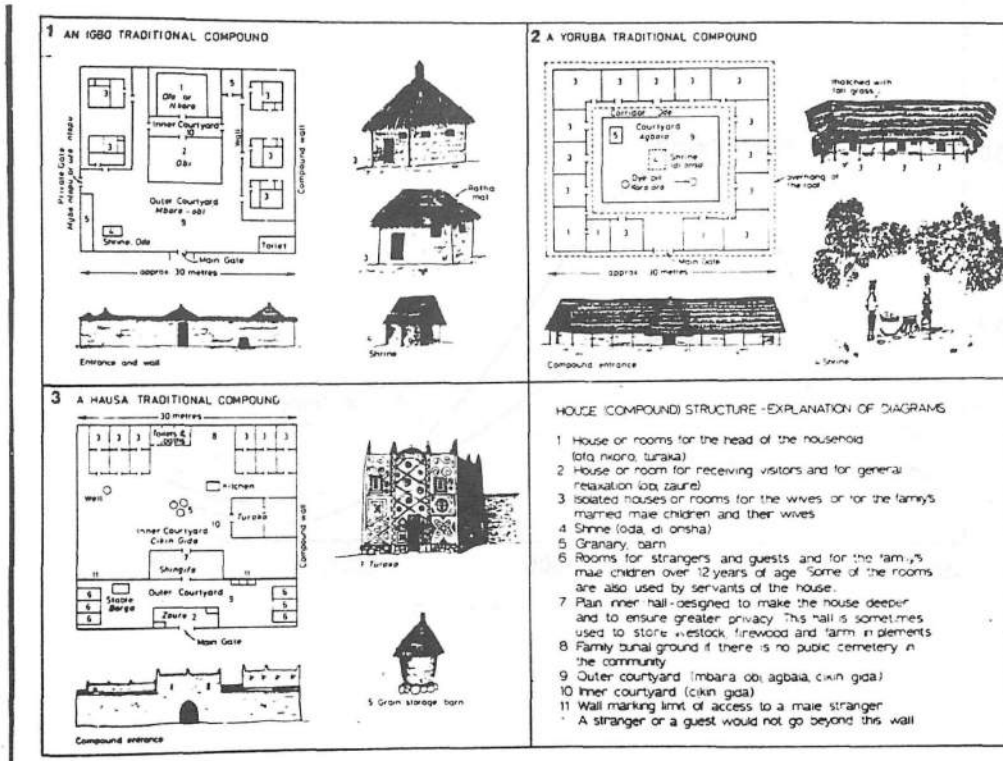 1 AN IGBO TRADITIONAL COMPOUND
1
Ofe or
Nkoro
5
3
3
Inner Courtyard
10
2
Obi
3
3
3
Wall
Compound wall
Private Gate
5
Outer Courtyard
Mbara-obi
9
4
Shrine, Oda
Toilet
Main Gate
approx. 30 metres
Entrance and wall
3
Ratha
mat
3
4
Shrine
2 A YORUBA TRADITIONAL COMPOUND
3 3 3 3 3 3
Corridor Ode
Courtyard
Agbala
9
5
4
Shrine
Idi orisa
Dye pit
3 3 3
3 3 3
1 1 3 1 3
Main Gate
approx. 30 metres
Compound entrance
thatched with
tall grass
3 3 3
overhang of
the roof
4 Shrine
3 A HAUSA TRADITIONAL COMPOUND
30 metres
3 3 3 3
Toilets &
8
3 3 3 3
Well
Kitchen
5
1
Turaka
10
Inner Courtyard
Cikin Gida
Compound wall
7
Shingifa
11
11
6
6
6
Stable
Barga
Outer Courtyard
9
6
6
6
Zaure 2
Main Gate
Compound entrance
1 Turaka
5 Grain storage barn
HOUSE (COMPOUND) STRUCTURE - EXPLANATION OF DIAGRAMS
1 House or rooms for the head of the household
(ofa, nkoro, turaka)
2 House or room for receiving visitors and for general
relaxation (obi, zaure)
3 Isolated houses or rooms for the wives or for the family's
married male children and their wives
4 Shrine (oda, idi orisha)
5 Granary, barn
6 Rooms for strangers and guests and for the family's
male children over 12 years of age. Some of the rooms
are also used by servants of the house.
7 Plain inner hall - designed to make the house deeper
and to ensure greater privacy. This hall is sometimes
used to store livestock, firewood and farm implements
8 Family burial ground if there is no public cemetery in
the community
9 Outer courtyard (mbara obi, agbala, cikin gida)
10 Inner courtyard (cikin gida)
11 Wall marking limit of access to a male stranger
A stranger or a guest would not go beyond this wall